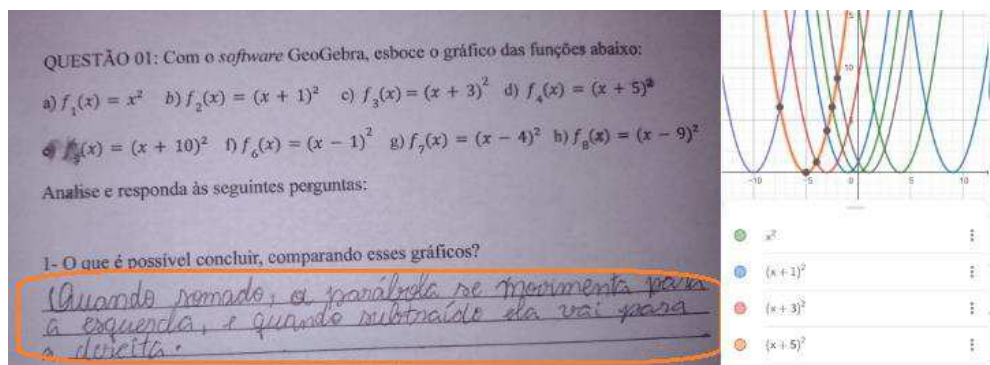 QUESTÃO 01: Com o software GeoGebra, esboce o gráfico das funções abaixo:
a) f₁(x) = x² b) f₂(x) = (x + 1)² c) f₃(x) = (x + 3)² d) f₄(x) = (x + 5)²
f₅(x) = (x + 10)² f) f₆(x) = (x − 1)² g) f₇(x) = (x − 4)² h) f₈(x) = (x − 9)²
Analise e responda às seguintes perguntas:
1- O que é possível concluir, comparando esses gráficos?
Quando somado, a parábola se movimenta para
a esquerda, e quando subtraído ela vai para
a direita.
5
10
-10 -5 0 5 10
x²
(x + 1)²
(x + 3)²
(x + 5)²